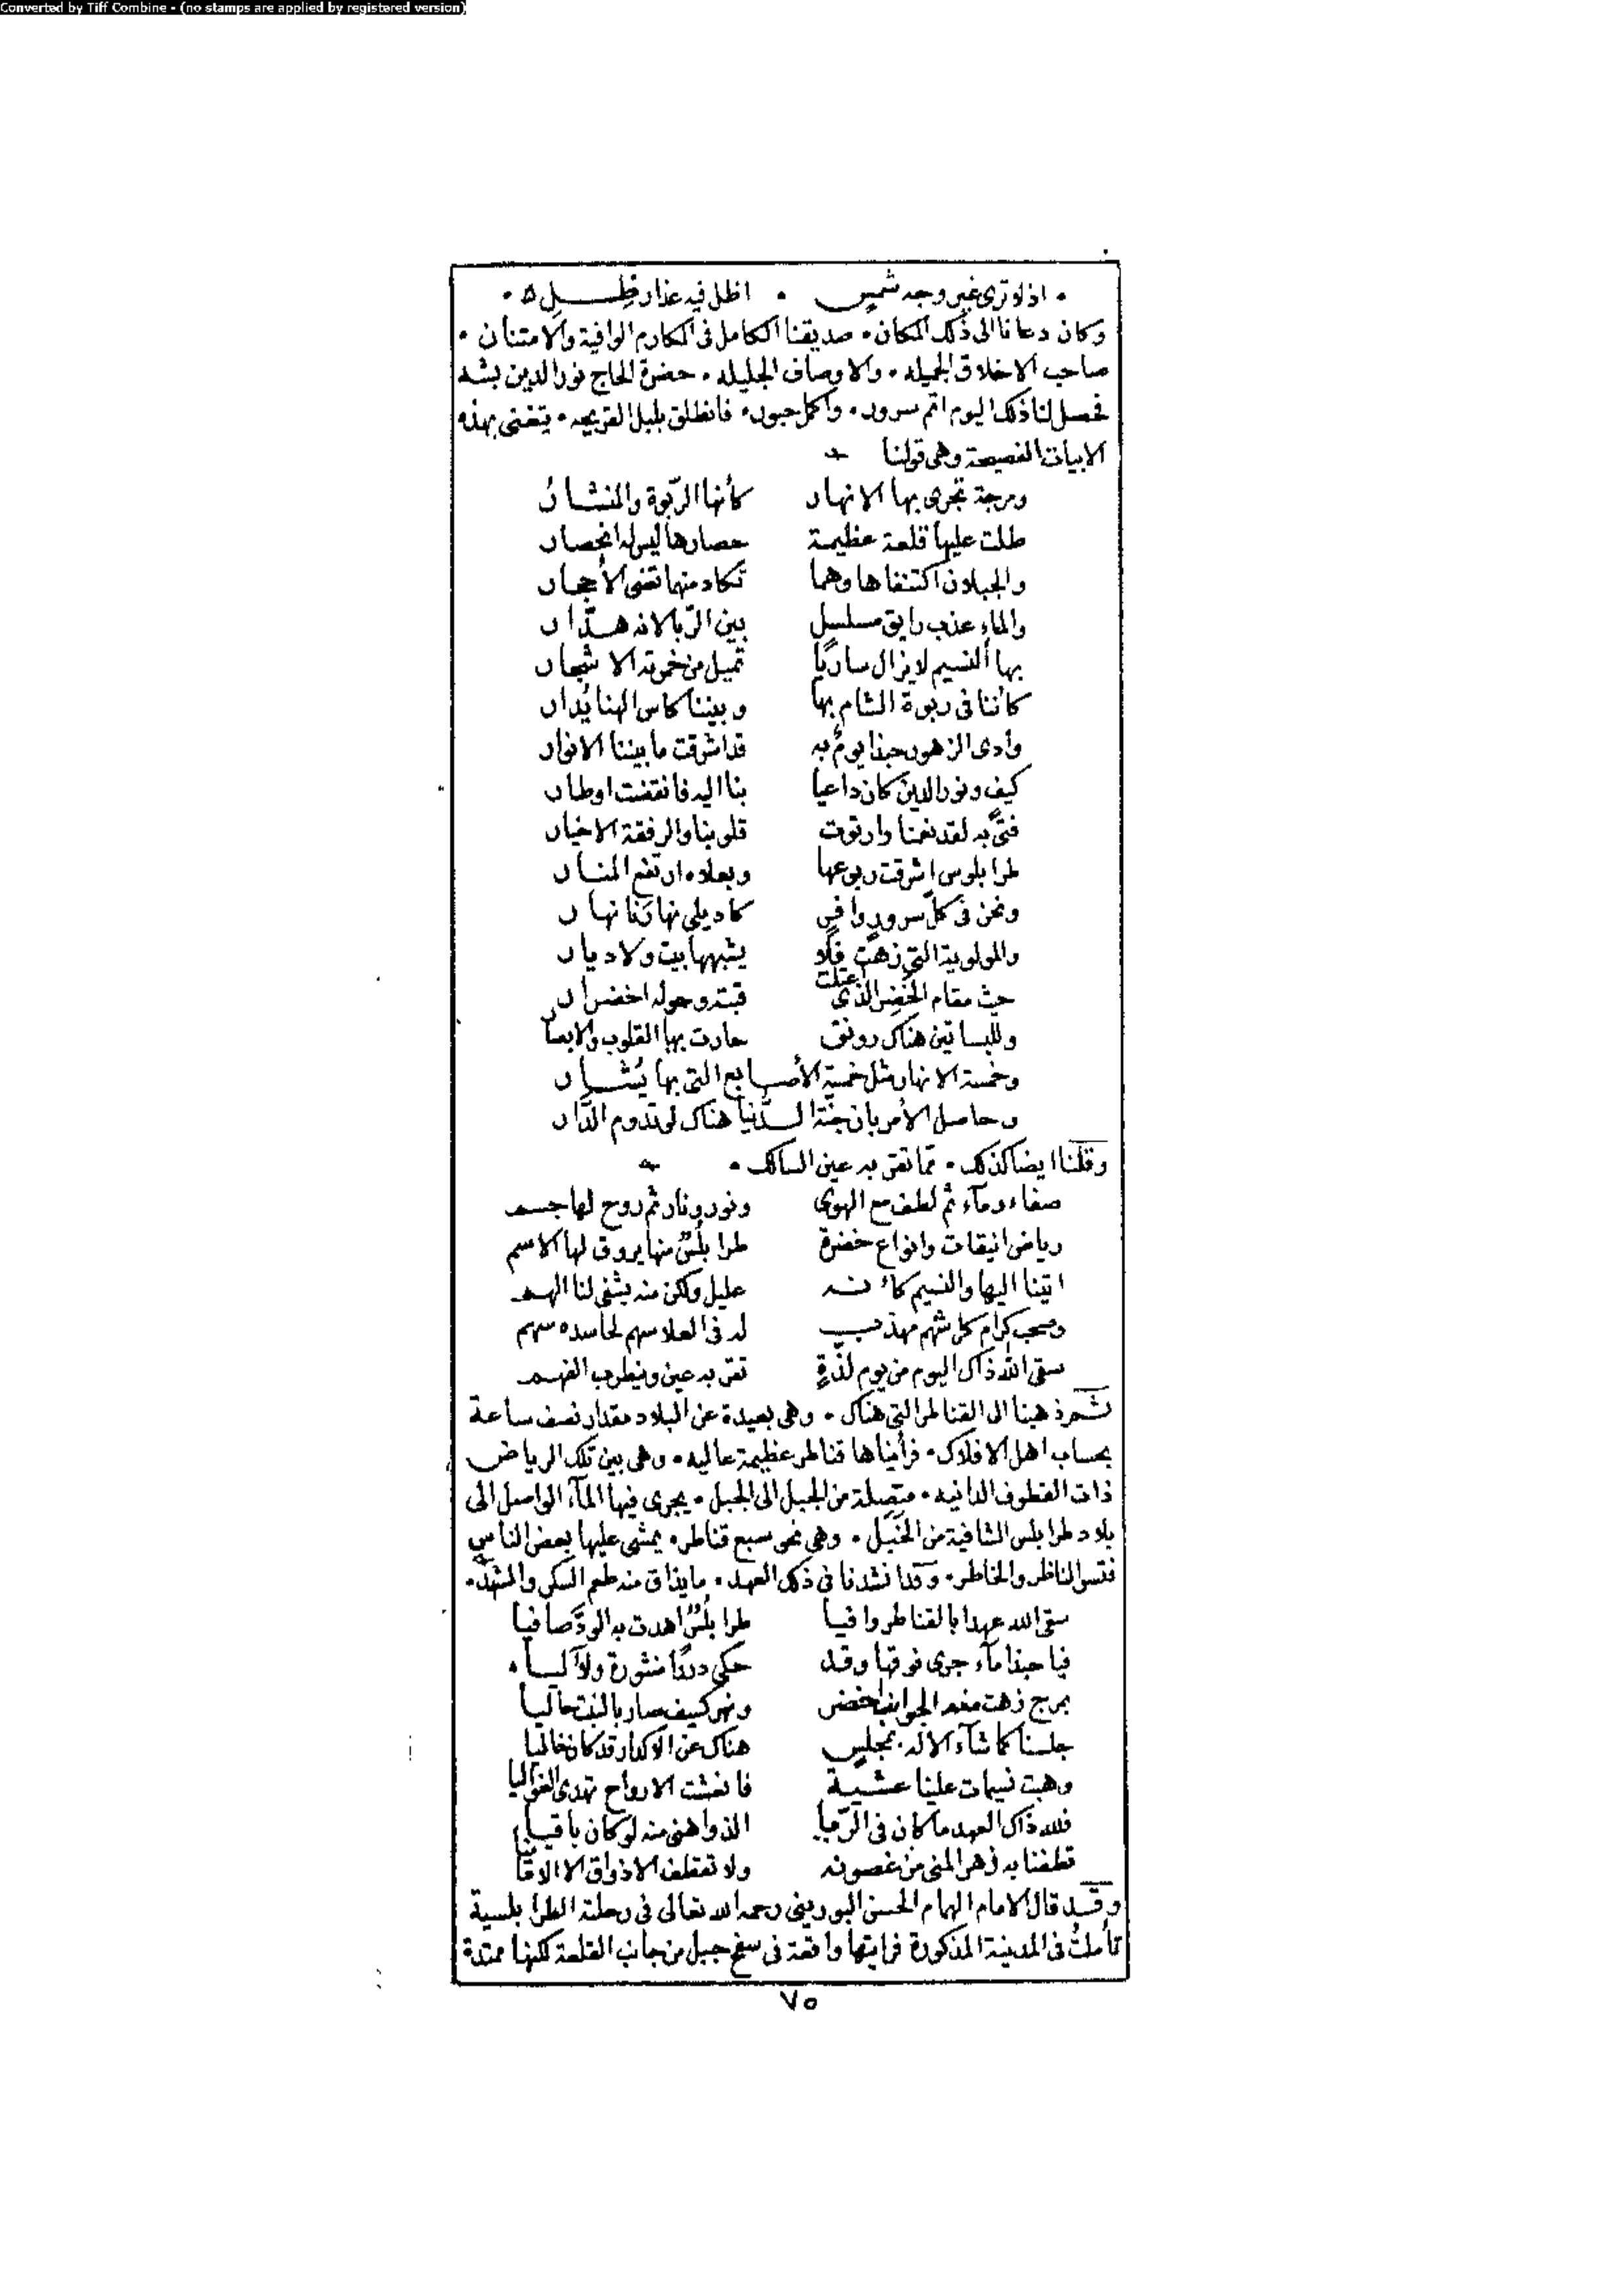 Converted by Tiff Combine - (no stamps are applied by registered version)
اذ لا ترى غير وجه شمس • اظل فيه عذار ظل
وكان دعانا الى ذلك المكان • صديقنا الكامل فى المكارم الوافية والامتنان •
صاحب الاخلاق الجميله • والاوصاف الجليله • حضرة الحاج نور الدين بشه
فحصل لنا ذلك اليوم اتم سرور • واكمل حبور • فانطلق بلبل القريحه • يتغنى بهذه
الابيات الفصيحة وهى قولنا
ومرجة تجرى بها الانهار كأنها الربوة والمنشار
طلت عليها قلعة عظيمة حصارها ليس له انحصار
والجبلان اكتنفاها وهما تكاد منها تفنى الأحجار
والماء عذب رايق مسلسل بين الربا لانه هدّار
بها النسيم لا يزال ساريا تميل من خمرته الاشجار
كأننا فى ربوة الشام بها وبيننا كاس الهنا يُدار
وادى الزهور حبذا يوم به قد اشرقت ما بيننا الانوار
كيف ونور الدين كان داعيا بنا اليه فانقضت اوطار
فتى به لقد نعمنا وارتوت قلوبنا والرفقة الاخيار
طرابلوس اشرقت ربوعها وبعلاه ارتفع المنار
ونحن فى كل سرور وافر كاد يلى نهارنا نهار
والمولوية التى زهت فلا يشبهها بيت ولا ديار
حث مقام الخضر الذى اعتلت قبته وحوله اخضرار
وللبساتين هناك رونق حارت بها القلوب والابصار
وخمسة الانهار مثل خمسة الأصابع التى بها يُشار
وحاصل الأمر بان جنة الدّنيا هناك لو تدوم الدّار
وقلنا ايضا كذلك • مما تقر به عين السالك •
صفاء ومآء ثم لطف مع الهوى ونور ونار ثم روح لها جسم
رياض انيقات وانواع خضرة طرابلسٌ منها يروق لها الاسم
اتينا اليها والنسيم كأنه عليل ولكن منه يشفى لنا الهم
وصحب كرام كل شهم مهذب له فى العلا سهم لحاسده سهم
سقى الله ذاك اليوم من يوم لذّةٍ تقر به عين ويطرب الفهم
ثم ذهبنا الى القناطر التى هناك • وهى بعيدة عن البلاد مقدار نصف ساعة
بحساب اهل الافلاك • فرأيناها قناطر عظيمة عاليه • وهى بين تلك الرياض
ذات القطوف الدانيه • متصلة من الجبل الى الجبل • يجرى فيها المآء الواصل الى
بلاد طرابلس الشافية من الخبل • وهى نحو سبع قناطر • يمشى عليها بعض الناس
فتسر الناظر والخاطر • وقد انشدنا فى ذلك العهد • ما يذاق منه طعم السكر والشهد •
سقى الله عهدا بالقناطر وافيا طرابلسٌ اهدت به الودّ صافيا
فيا حبذا مآء جرى فوقها وقد حكى دررًا منثورة ولآليا •
بمرج زهت منه الجوانب اخضر ونهر كسيف صار بالنبت حاليا
جلسنا كما شآء الاله بمجلس هناك عن الاكدار قد كان خاليا
وهبت نسيمات علينا عشية فانعشت الارواح تهدى الغواليا
فلله ذاك العهد ما كان فى الرّبا الذ واهنى منه لو كان باقيا
قطفنا به زهر المنى من غصونه ولا تقطف الاذواق الا
وقد قال الامام الهمام الحسن البورينى رحمه الله تعالى فى رحلته الطرابلسية
تأملتُ فى المدينة المذكورة فرايتها واقعة فى سفح جبل من جانب القلعة لكنها ممتدة
٧٥